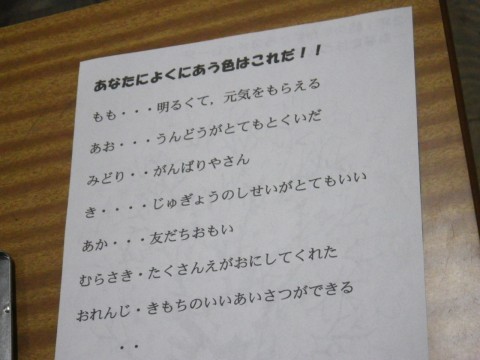 あなたによくにあう色はこれだ！！
もも・・・明るくて，元気をもらえる
あお・・・うんどうがとてもとくいだ
みどり・・がんばりやさん
き・・・・じゅぎょうのしせいがとてもいい
あか・・・友だちおもい
むらさき・たくさんえがおにしてくれた
おれんじ・きもちのいいあいさつができる
・・